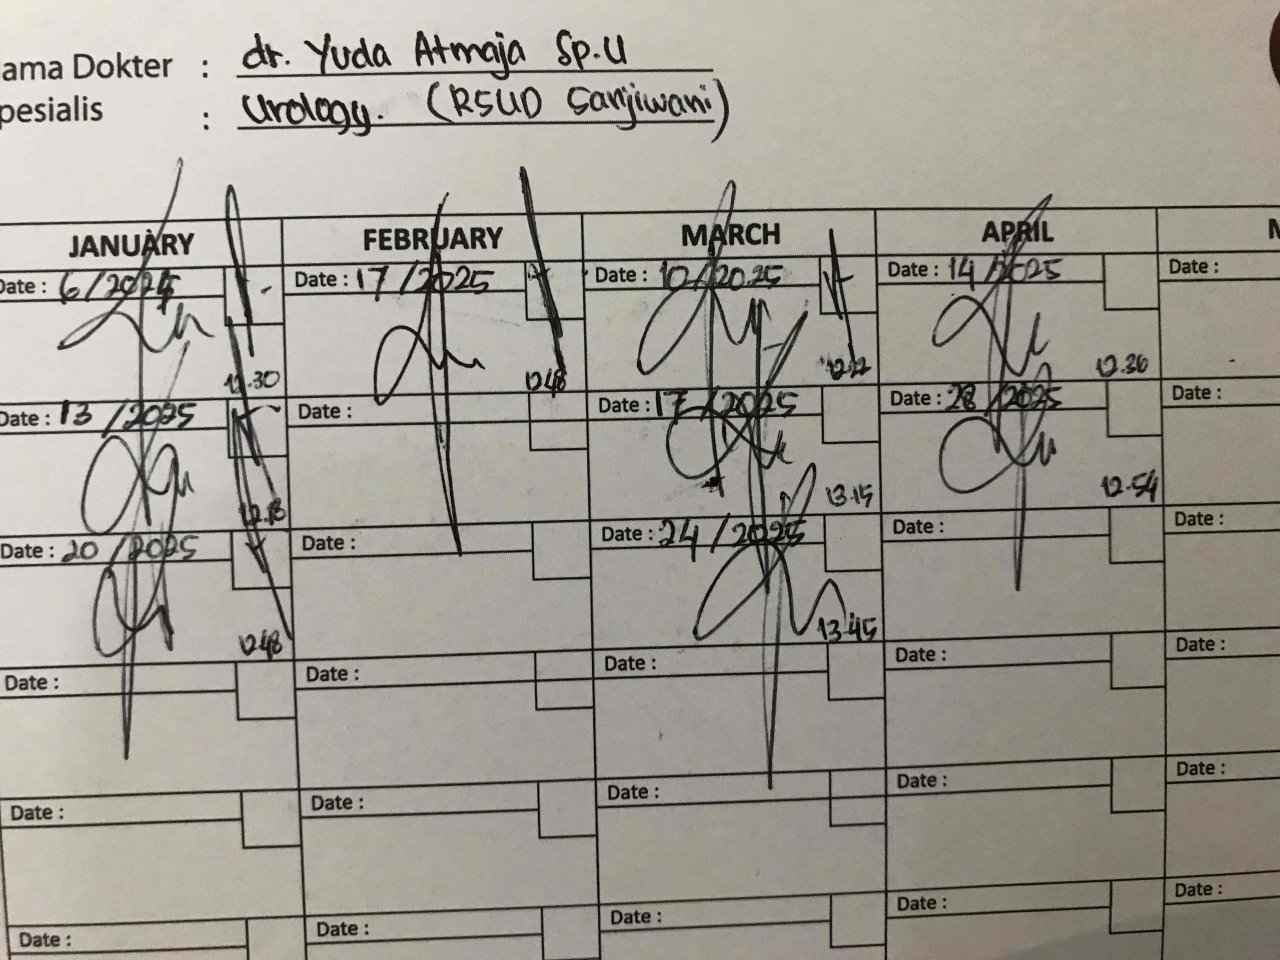 ama Dokter : dr. Yuda Atmaja Sp.U
pesialis : Urology. (RSUD Sanjiwani)
JANUARY FEBRUARY MARCH APRIL
Date : 6/2025 Date : 17/2025 Date : 10/2025 Date : 14/2025 Date :
12.30 12.48 12.12 12.36
Date : 13/2025 Date : Date : 17/2025 Date : 28/2025 Date :
12.18 13.15 12.54
Date : 20/2025 Date : Date : 24/2025 Date : Date :
12.48 13.45
Date : Date : Date : Date : Date :
Date : Date : Date : Date : Date :
Date : Date : Date : Date : Date :